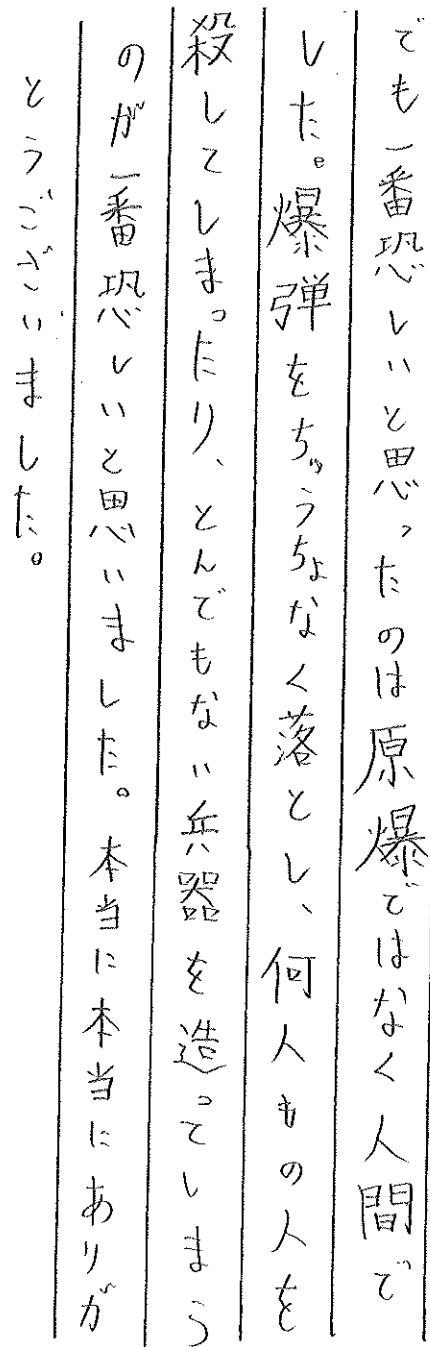 でも一番恐しいと思ったのは原爆ではなく人間で
した。爆弾をちゅうちょなく落とし、何人もの人を
殺してしまったり、とんでもない兵器を造ってしまう
のが一番恐しいと思いました。本当に本当にありが
とうございました。